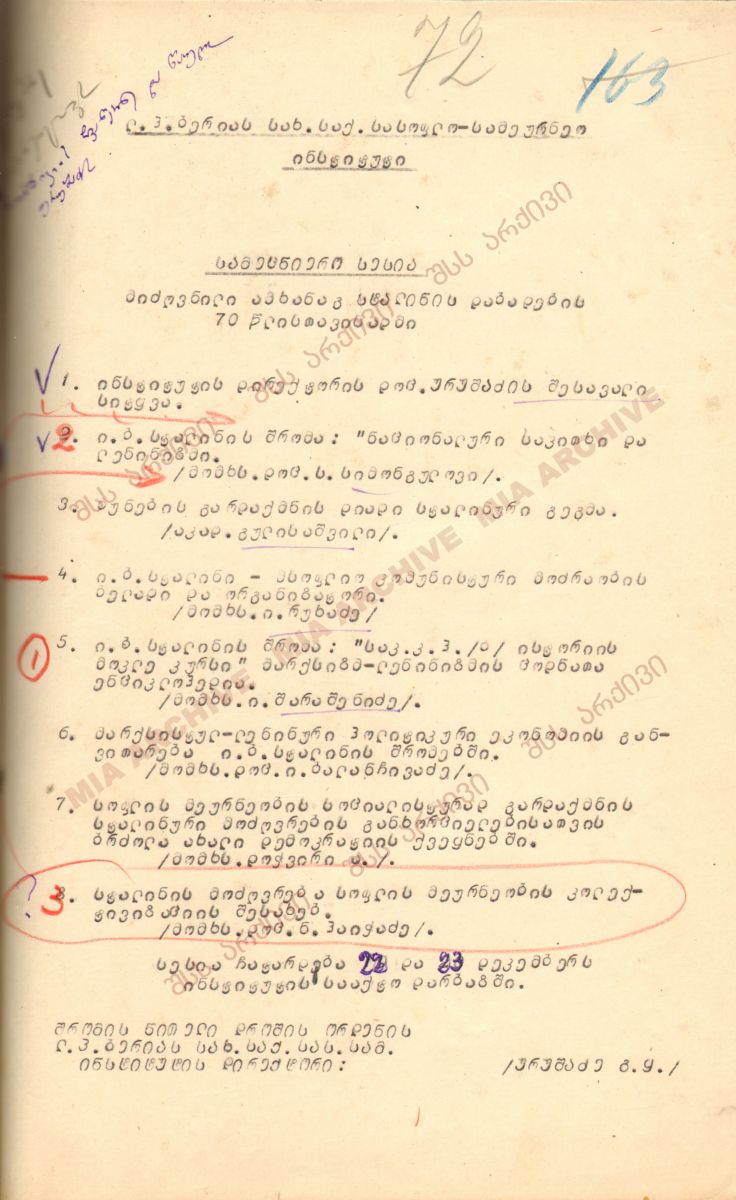 72
163
ლ.პ.ბერიას სახ.საქ.სასოფლო-სამეურნეო
ინსტიტუტი
სამეცნიერო სესია
მიძღვნილი ამხანაგ სტალინის დაბადების
70 წლისთავისადმი
1. ინსტიტუტის დირექტორის დოც.ურუშაძის შესავალი
სიტყვა.
2. ი.ბ.სტალინის შრომა: "ნაციონალური საკითხი და
ლენინიზმი.
/მომხს.დოც.ს.სიმონგულოვი/.
3. ბუნების გარდაქმნის დიადი სტალინური გეგმა.
/აკად.გულისაშვილი/.
4. ი.ბ.სტალინი - მსოფლიო კომუნისტური მოძრაობის
ბელადი და ორგანიზატორი.
/მომხს.ი.რუხაძე/
1
5. ი.ბ.სტალინის შრომა: "საკ.კ.პ./ბ/ ისტორიის
მოკლე კურსი" მარქსიზმ-ლენინიზმის ცოდნათა
ენციკლოპედია.
/მომხს.ი.შარაშენიძე/.
6. მარქსისტულ-ლენინური პოლიტიკური ეკონომიის გან-
ვითარება ი.ბ.სტალინის შრომებში.
/მომხს.დოც.ი.ბალანჩივაძე/.
7. სოფლის მეურნეობის სოციალისტურად გარდაქმნის
სტალინური მოძღვრების განხორციელებისათვის
ბრძოლა ახალი დემოკრატიის ქვეყნებში.
/მომხს.დოჭვირი
? 3
8. სტალინის მოძღვრება სოფლის მეურნეობის კოლექ-
ტივიზაციის შესახებ.
/მომხს.დოც.ნ.პაიჭაძე/.
სესია ჩატარდება 22 და 23 დეკემბერს
ინსტიტუტის სააქტო დარბაზში.
შრომის წითელი დროშის ორდენის
ლ.პ.ბერიას სახ.საქ.სას.სამ.
ინსტიტუტის დირექტორი: /ურუშაძე გ.ყ./
შსს არქივი MIA ARCHIVE
შსს არქივი MIA ARCHIVE
MIA ARCHIVE შსს არქივი
შსს არქივი
შსს არქივი
შსს არქივი